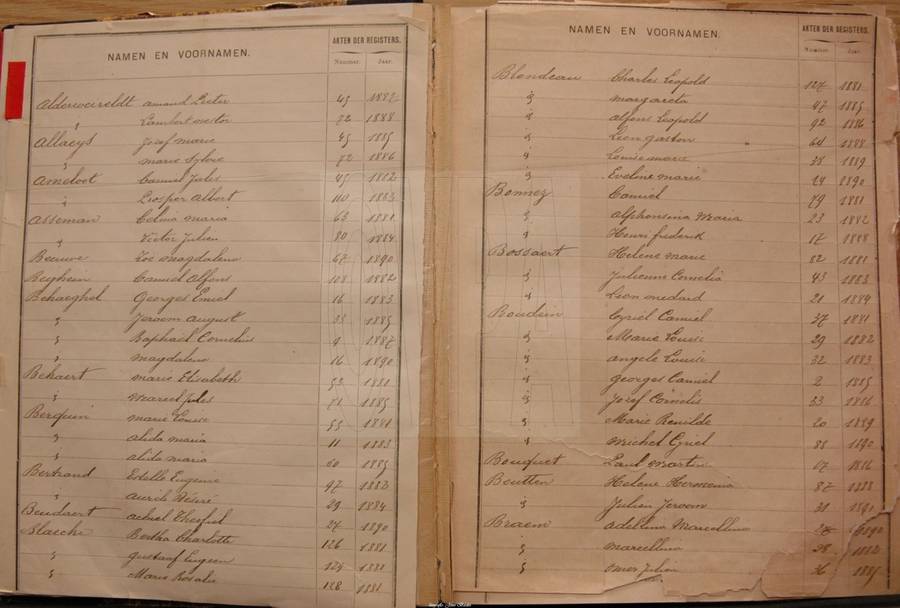 NAMEN EN VOORNAMEN.
AKTEN DER REGISTERS.
Nummer. Jaar.
Alderweireldt Amand Pieter 45 1882
" Lambert Nestor 72 1888
Allaeys Josef Marie 45 1885
" Marie Sylvie 72 1886
Ameloot Camiel Jules 45 1882
" Prosper Albert 110 1883
Asseman Celina Maria 63 1881
" Victor Julien 80 1884
Beeuwe Zoe Magdalena 67 1890
Beyhein Camiel Alfons 108 1882
Behaeghel Georges Emiel 16 1883
" Jeroom August 33 1885
" Raphaël Cornelius 9 1887
" Magdalena 16 1890
Bekaert Marie Elisabeth 53 1881
" Marcel Jules 71 1885
Berquin Marie Louise 55 1881
" Alida Maria 11 1883
" Alida Maria 60 1885
Bertrand Estelle Eugenie 97 1882
" Aurele Désiré 29 1884
Beudaert Achiel Theofiel 24 1890
Blaecke Bertha Charlotte 126 1881
" Gustaaf Eugeen 124 1881
" Marie Rosalie 128 1881
NAMEN EN VOORNAMEN.
AKTEN DER REGISTERS.
Nummer. Jaar.
Blondeau Charles Leopold 127 1881
" Margareta 47 1885
" Alfons Leopold 92 1886
" Leon Gaston 64 1888
" Louise Marie 38 1889
" Eveline Marie 24 1890
Bonnez Camiel 79 1881
" Alphonsina Maria 23 1882
" Henri Frederik 17 1888
Bossaert Helene Marie 82 1881
" Julienne Cornelia 43 1883
" Leon Medard 21 1889
Boudein Cyriel Camiel 37 1881
" Marie Louise 29 1882
" Angele Louise 32 1883
" Georges Camiel 2 1885
" Jozef Cornelis 33 1886
" Marie Renilde 20 1889
" Michel Cyriel 88 1890
Bouquet Paul Martin 67 1886
Boutten Helene Hermenia 87 1888
" Julien Jeroom 31 1891
Braem Adelina Marcellina 1890
" Marcellina 28 1882
" Omer Julien 36 1885